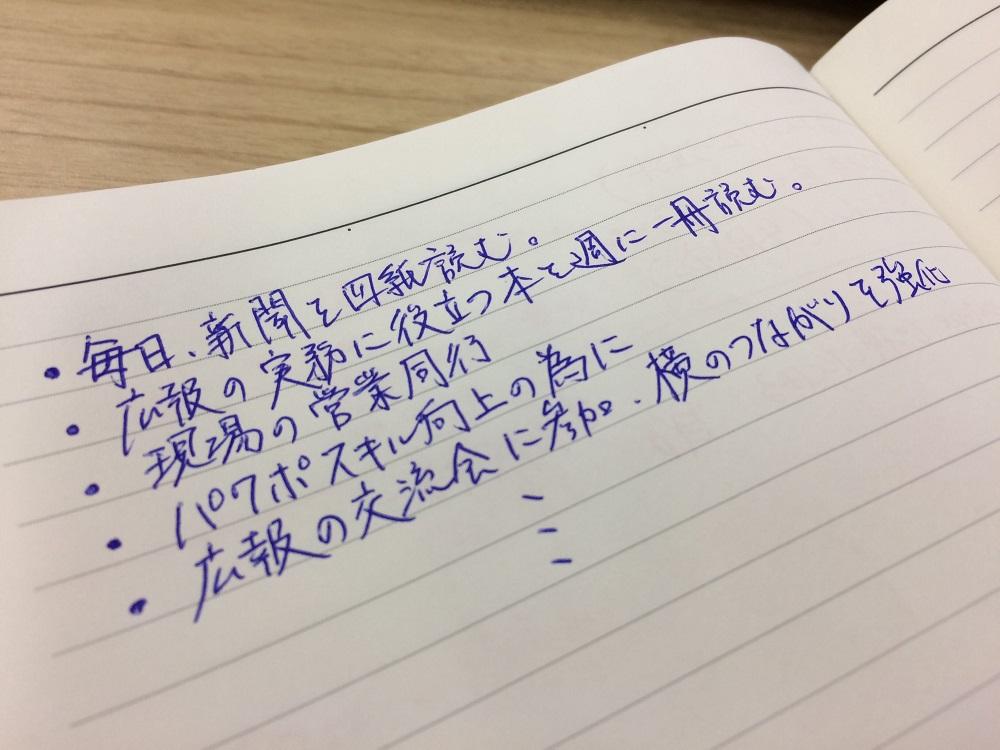 ・毎日、新聞を四紙読む。
・広報の実務に役立つ本を週に一冊読む。
・現場の営業同行
・パワポスキル向上の為に
・広報の交流会に参加、横のつながりを強化